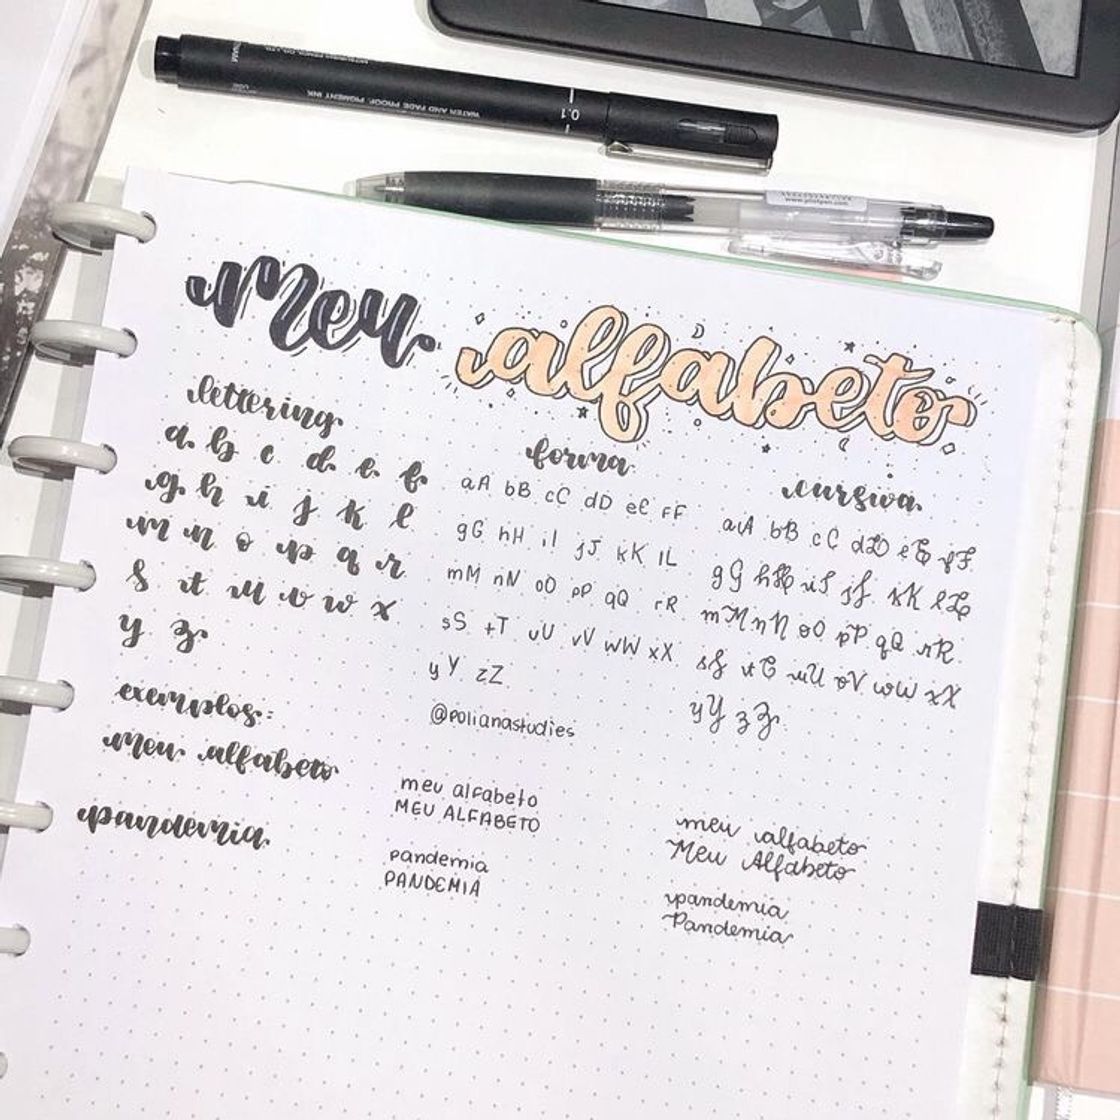 WATER AND FADE PROOF, PIGMENT INK
0.1
www.pilotpen.com
Meu alfabeto
lettering
a b c d e f
g h i j k l
m n o p q r
s t u v w x
y z
exemplos:
meu alfabeto
pandemia
forma
aA bB cC dD eE fF
gG hH iI jJ kK lL
mM nN oO pP qQ rR
sS tT uU vV wW xX
yY zZ
@polianastudies
meu alfabeto
MEU ALFABETO
pandemia
PANDEMIA
cursiva
aA bB cC dD eE fF
gG hH iI jJ kK lL
mM nN oO pP qQ rR
sS tT uU vV wW xX
yY zZ
meu alfabeto
Meu Alfabeto
pandemia
Pandemia